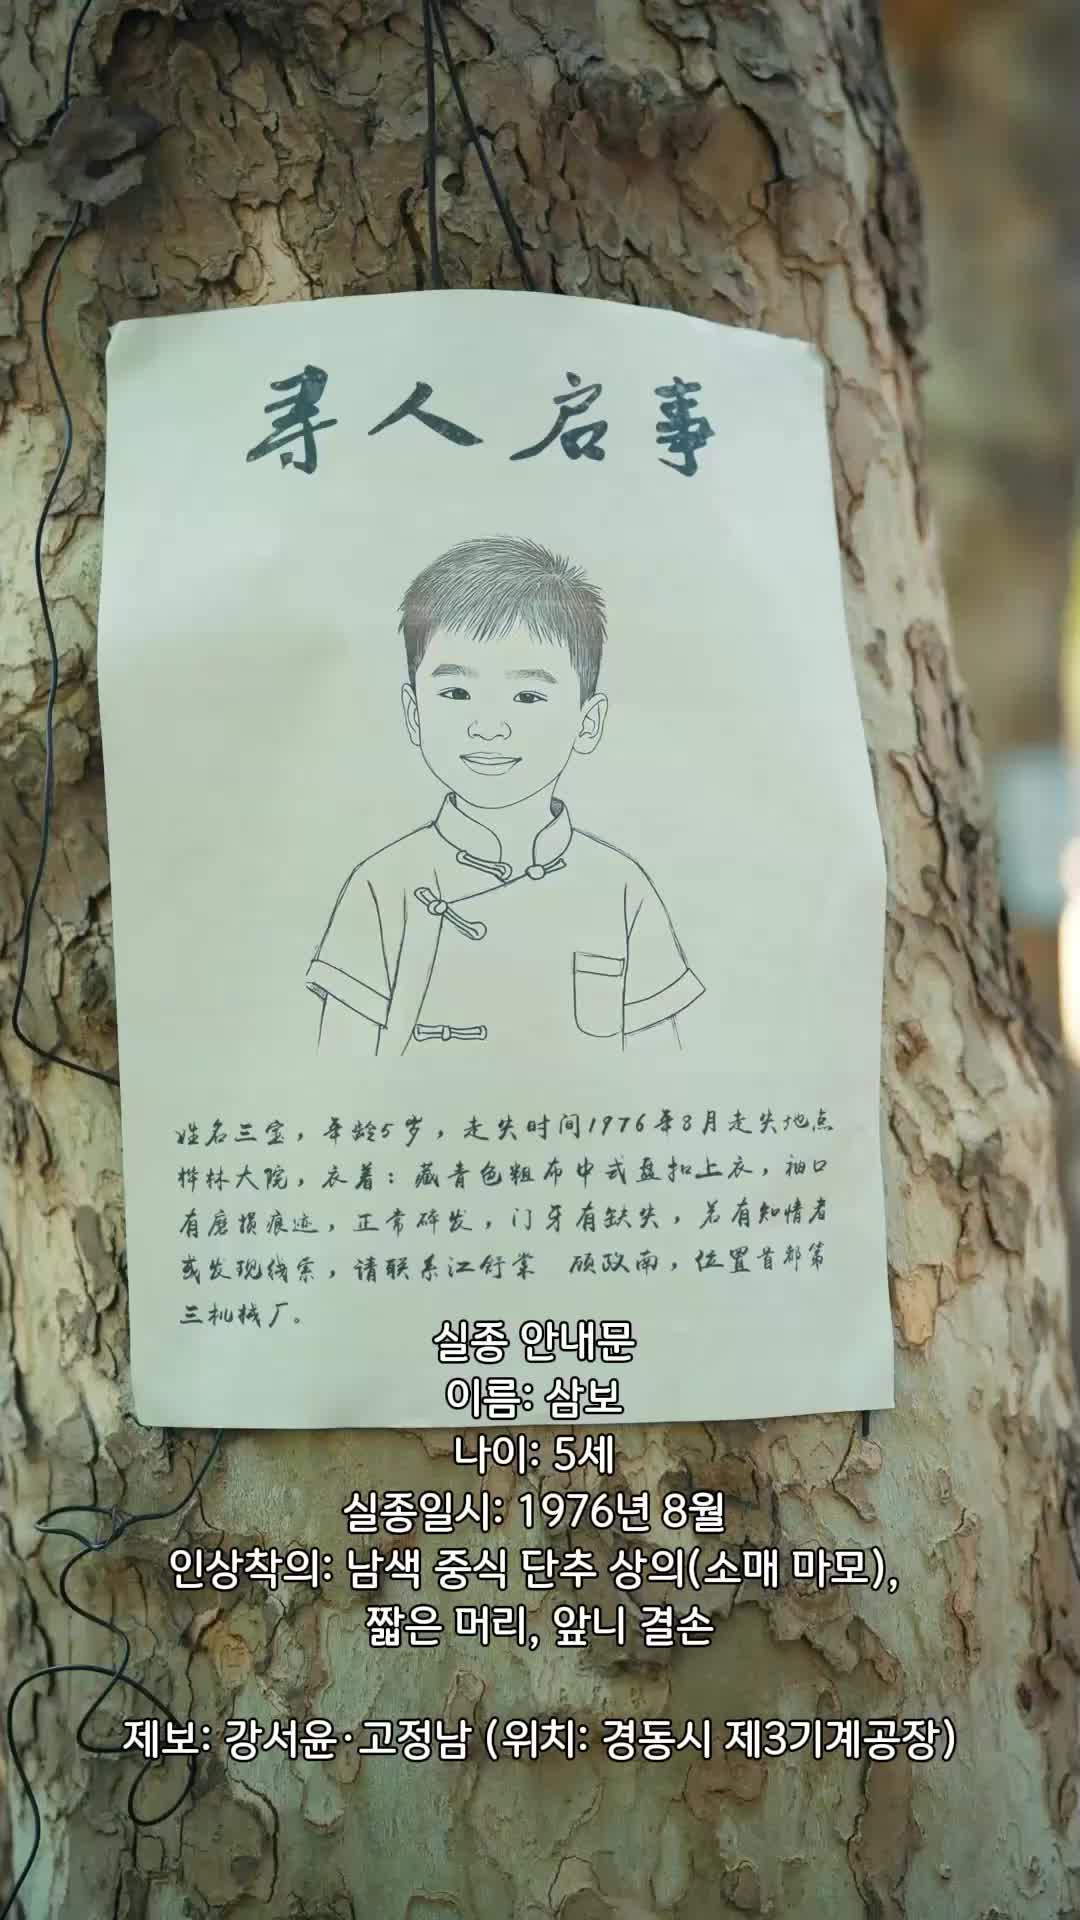 寻人启事
姓名三宝，年龄5岁，走失时间1976年8月走失地点
桦林大院，衣着：藏青色粗布中式盘扣上衣，袖口
有磨损痕迹，正常碎发，门牙有缺失，若有知情者
或发现线索，请联系江舒棠 顾政南，位置首都第
三机械厂。
실종 안내문
이름: 삼보
나이: 5세
실종일시: 1976년 8월
인상착의: 남색 중식 단추 상의(소매 마모),
짧은 머리, 앞니 결손
제보: 강서윤·고정남 (위치: 경동시 제3기계공장)